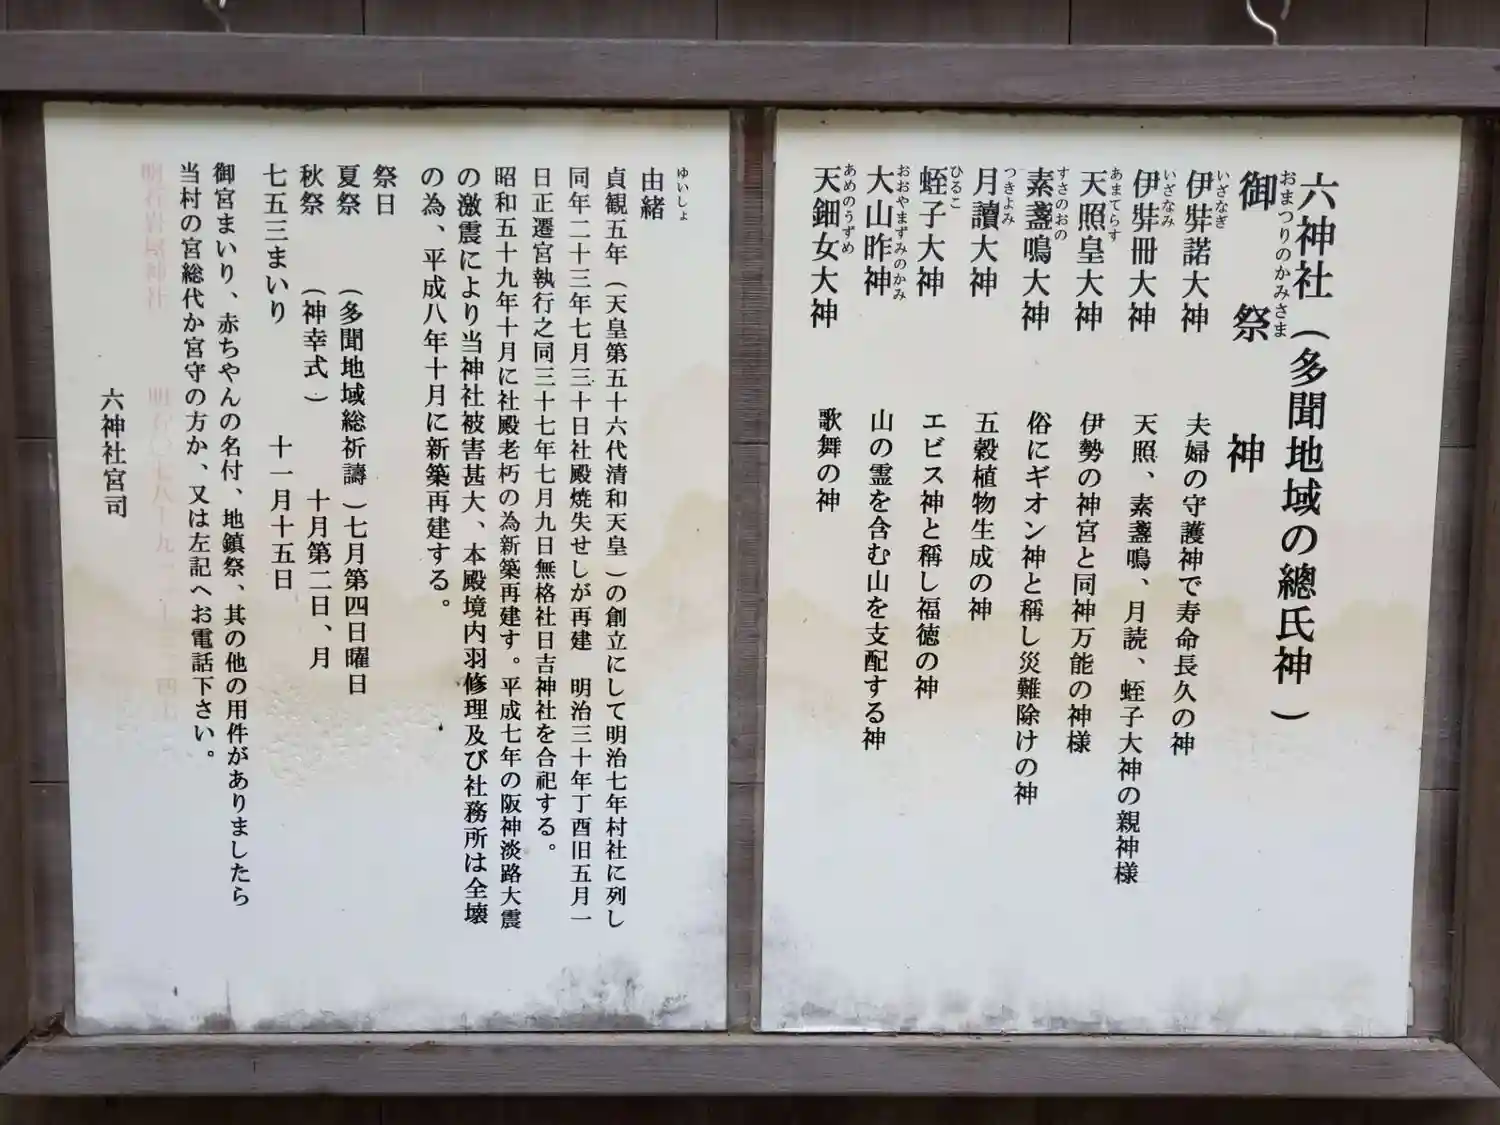 六神社(多聞地域の總氏神)
おまつりのかみさま
御祭神
いざなぎ
伊弉諾大神 夫婦の守護神で寿命長久の神
いざなみ
伊弉冊大神 天照、素盞鳴、月読、蛭子大神の親神様
あまてらす
天照皇大神 伊勢の神宮と同神万能の神様
すさのおの
素盞鳴大神 俗にギオン神と稱し災難除けの神
つきよみ
月讀大神 五穀植物生成の神
ひるこ
蛭子大神 エビス神と稱し福徳の神
おおやまずみのかみ
大山昨神 山の霊を含む山を支配する神
あめのうずめ
天鈿女大神 歌舞の神
ゆいしょ
由緒
貞観五年(天皇第五十六代清和天皇)の創立にして明治七年村社に列し
同年二十三年七月三十日社殿焼失せしが再建 明治三十年丁酉旧五月一
日正遷宮執行之同三十七年七月九日無格社日吉神社を合祀する。
昭和五十九年十月に社殿老朽の為新築再建す。平成七年の阪神淡路大震
の激震により当神社被害甚大、本殿境内羽修理及び社務所は全壊
の為、平成八年十月に新築再建する。
祭日
夏祭 (多聞地域総祈禱)七月第四日曜日
秋祭 (神幸式) 十月第二日、月
七五三まいり 十一月十五日
御宮まいり、赤ちゃんの名付、地鎮祭、其の他の用件がありましたら
当村の宮総代か宮守の方か、又は左記へお電話下さい。
六神社宮司